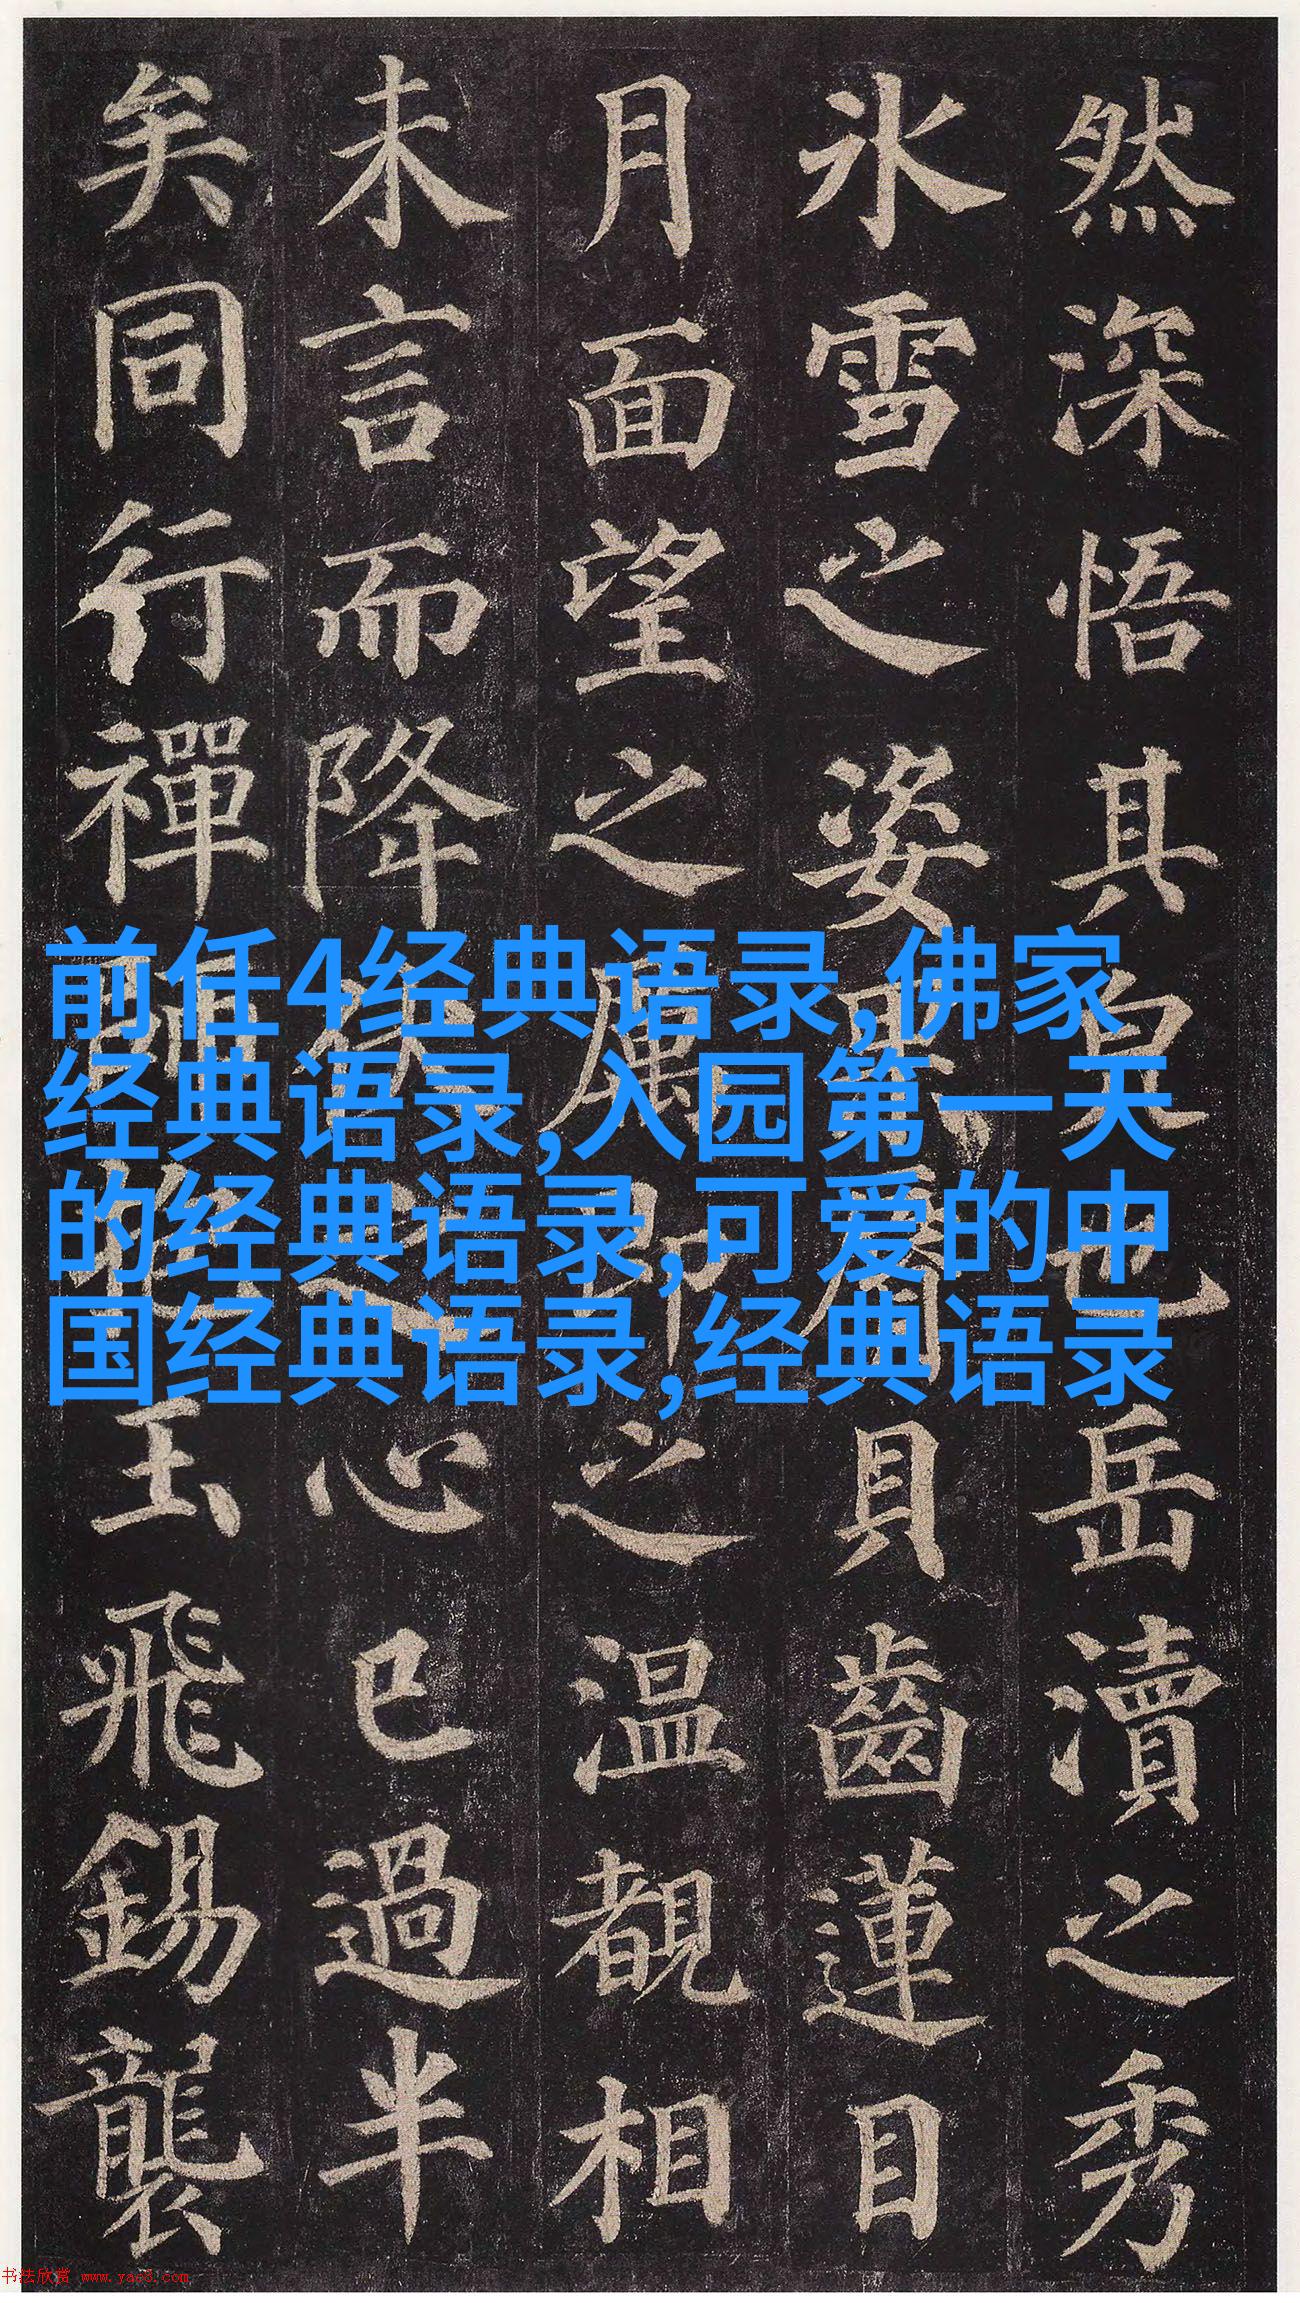 然深悟其皃也岳瀆之秀
氷雪之姿果脣貝齒蓮目
月面望之厲即之温覩相
未言而降伏之心已過半
矣同行禪師抱玉飛錫襲
前任4经典语录,佛家
经典语录,入园第一天
的经典语录,可爱的中
国经典语录,经典语录
书法欣赏 www.yac8.com